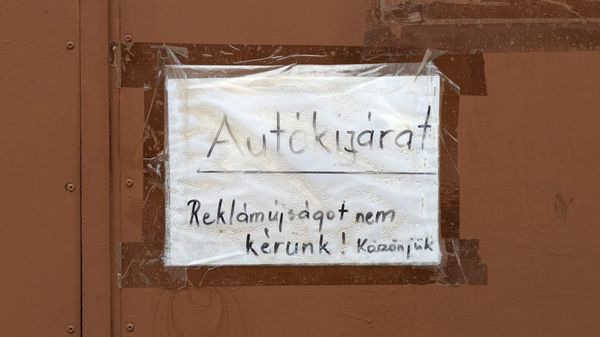 Autókizárat
Reklámújságot nem
kérünk! Köszönjük